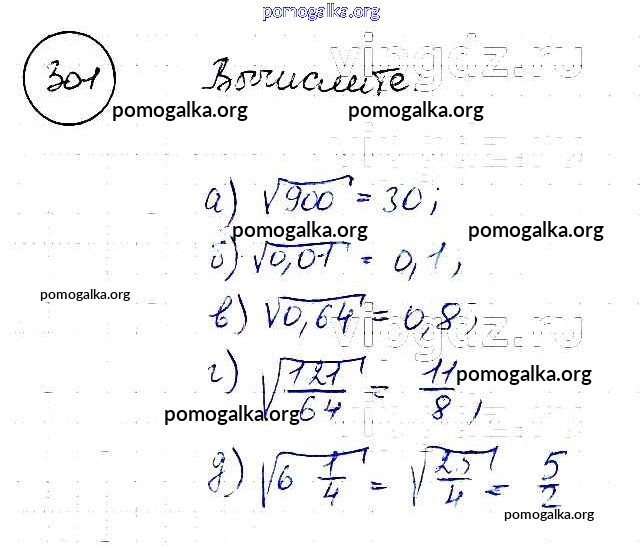 pomogalka.org
vipgdz.ru
301 Вычислите.
pomogalka.org pomogalka.org
vipgdz.ru
а) √900 = 30;
pomogalka.org pomogalka.org
б) √0,01 = 0,1,
pomogalka.org
в) √0,64 = 0,8,
vipgdz.ru
г) √121/64 = 11/8,
pomogalka.org
pomogalka.org
vipgdz.ru
д) √6 1/4 = √25/4 = 5/2
pomogalka.org